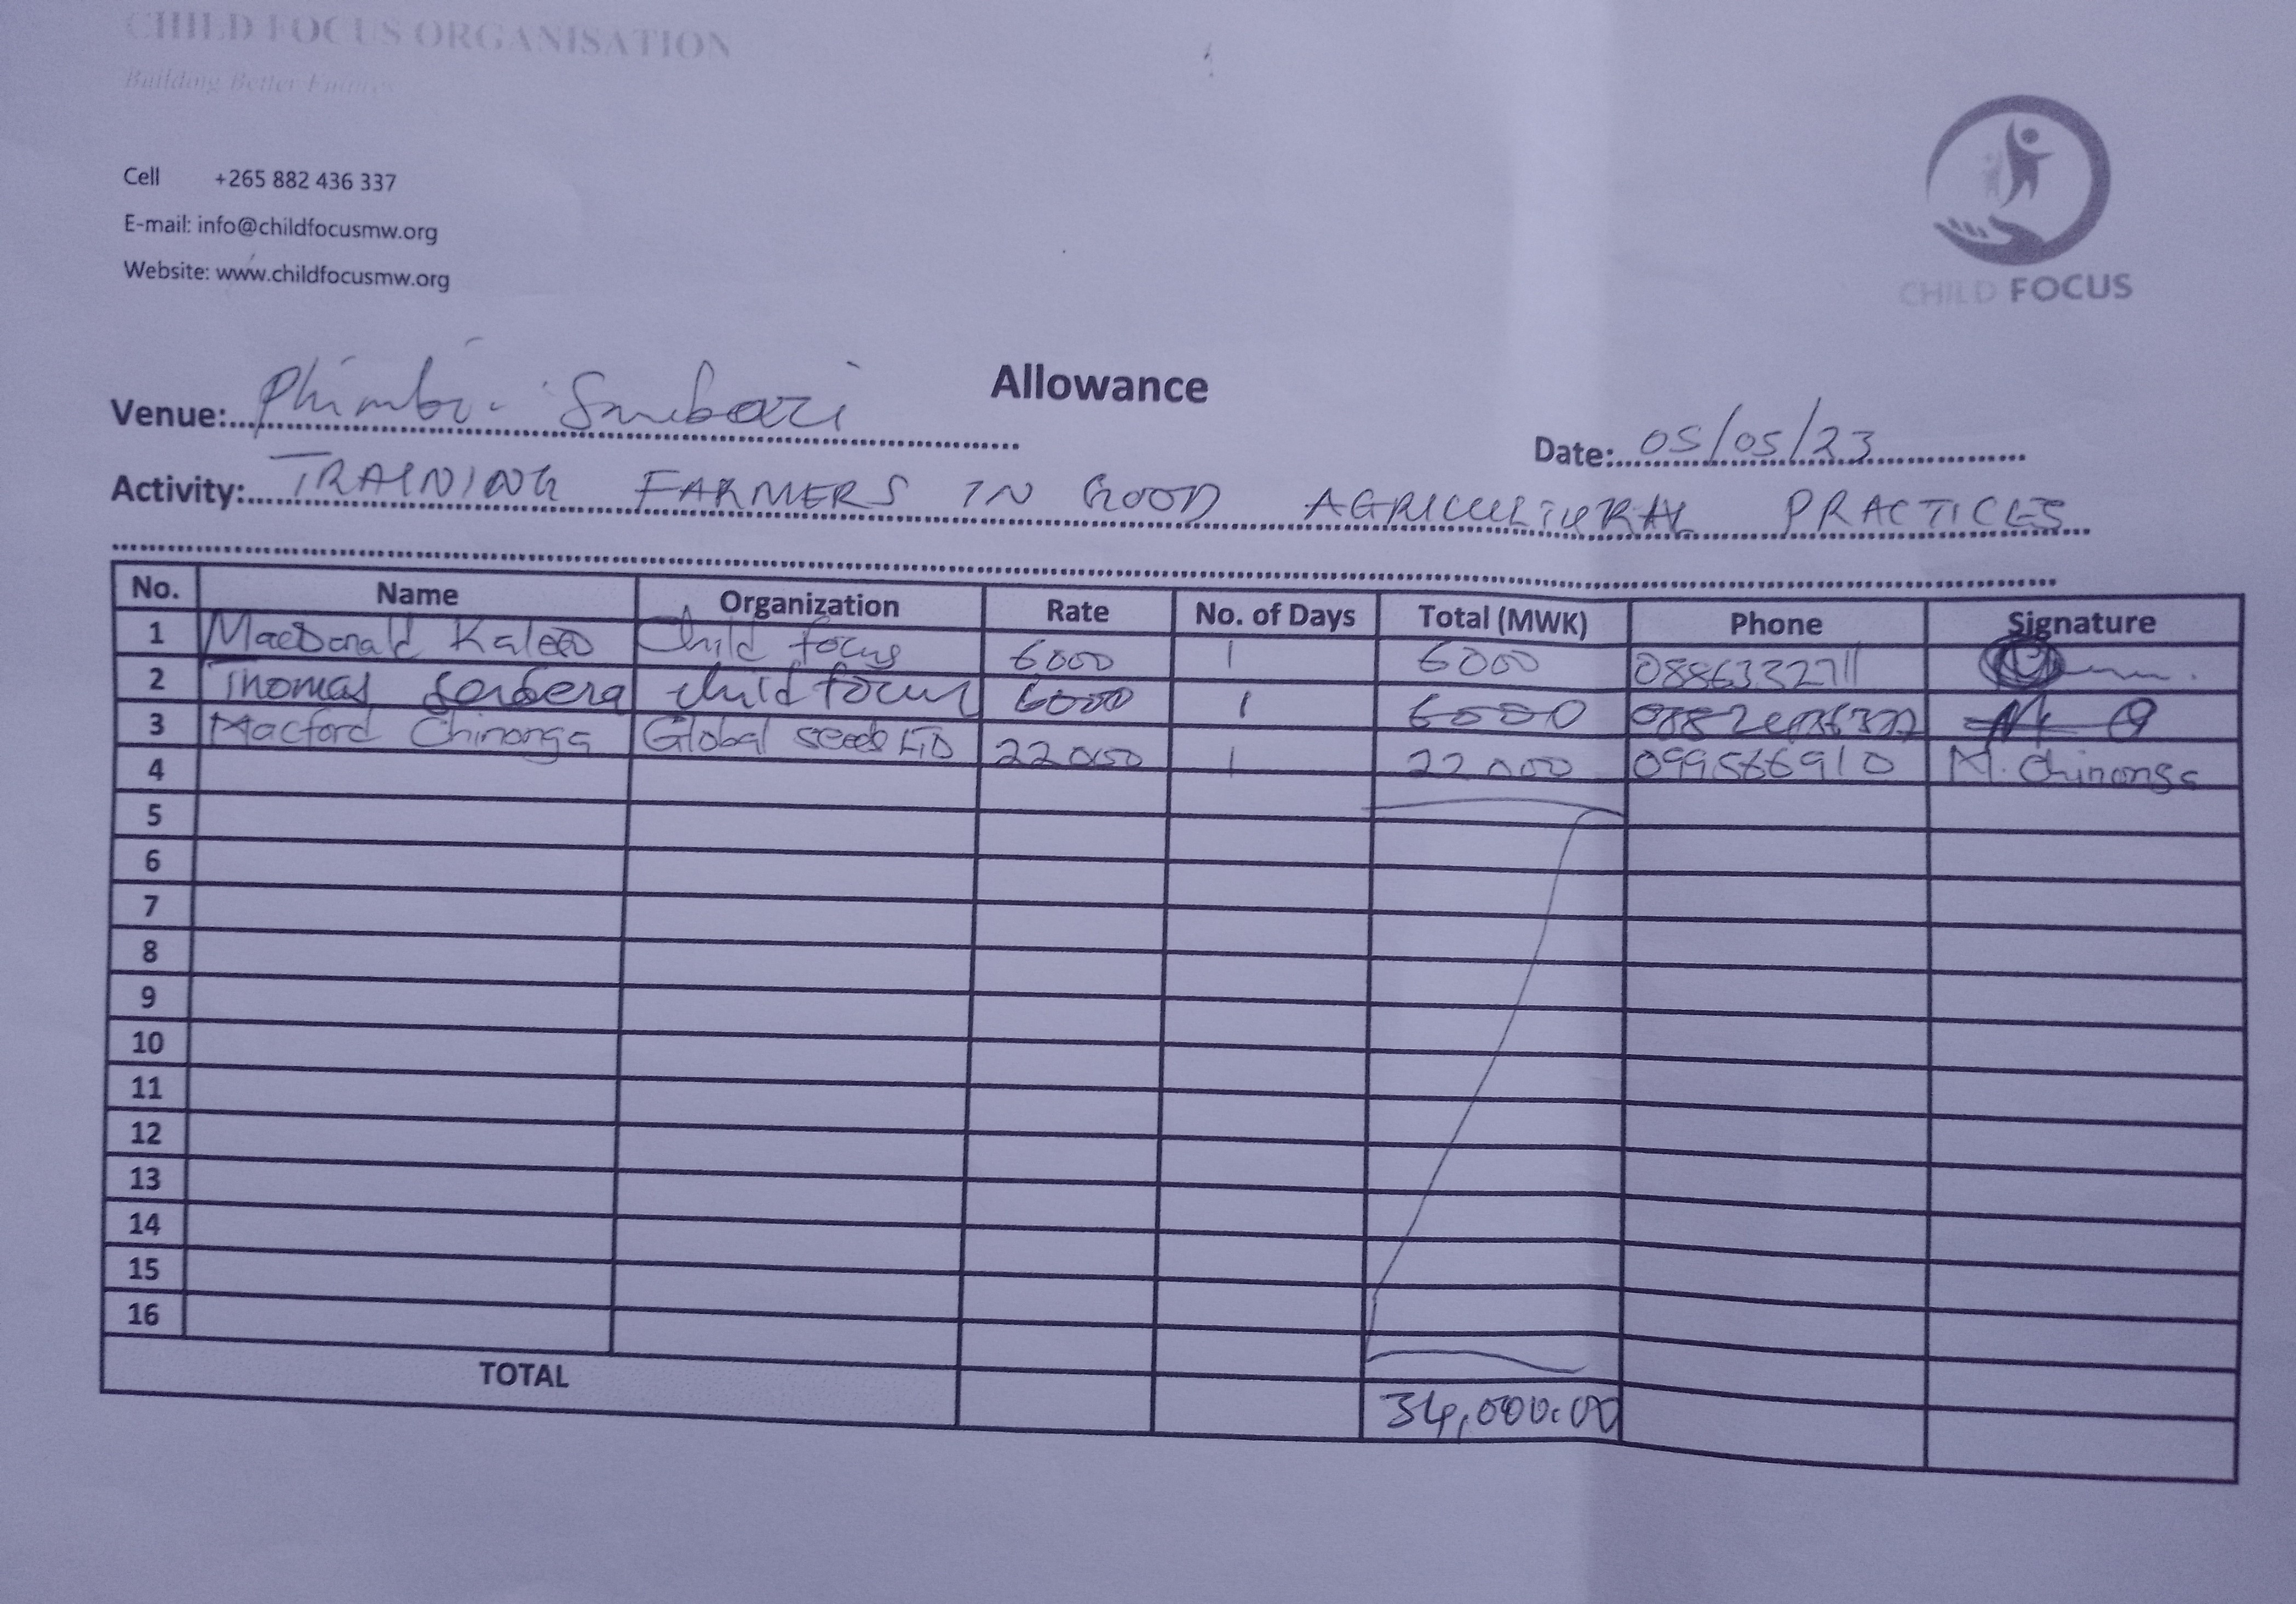 CHILD FOCUS ORGANISATION
Building Better Futures
Cell +265 882 436 337
E-mail: info@childfocusmw.org
Website: www.childfocusmw.org
CHILD FOCUS
Allowance
Venue: Phimbi -
Date: 05/05/23
Activity: TRAINING FARMERS IN GOOD AGRICULTURAL PRACTICES
No. Name Organization Rate No. of Days Total (MWK) Phone Signature
1 MacDonald Child focus 6000 1 6000 0886332711
2 Thomas child focus 6000 1 6000
3 Macford Chinonga Global seeds LTD 22000 1 22000 099566910 M. Chinonga
4
5
6
7
8
9
10
11
12
13
14
15
16
TOTAL 34,000.00